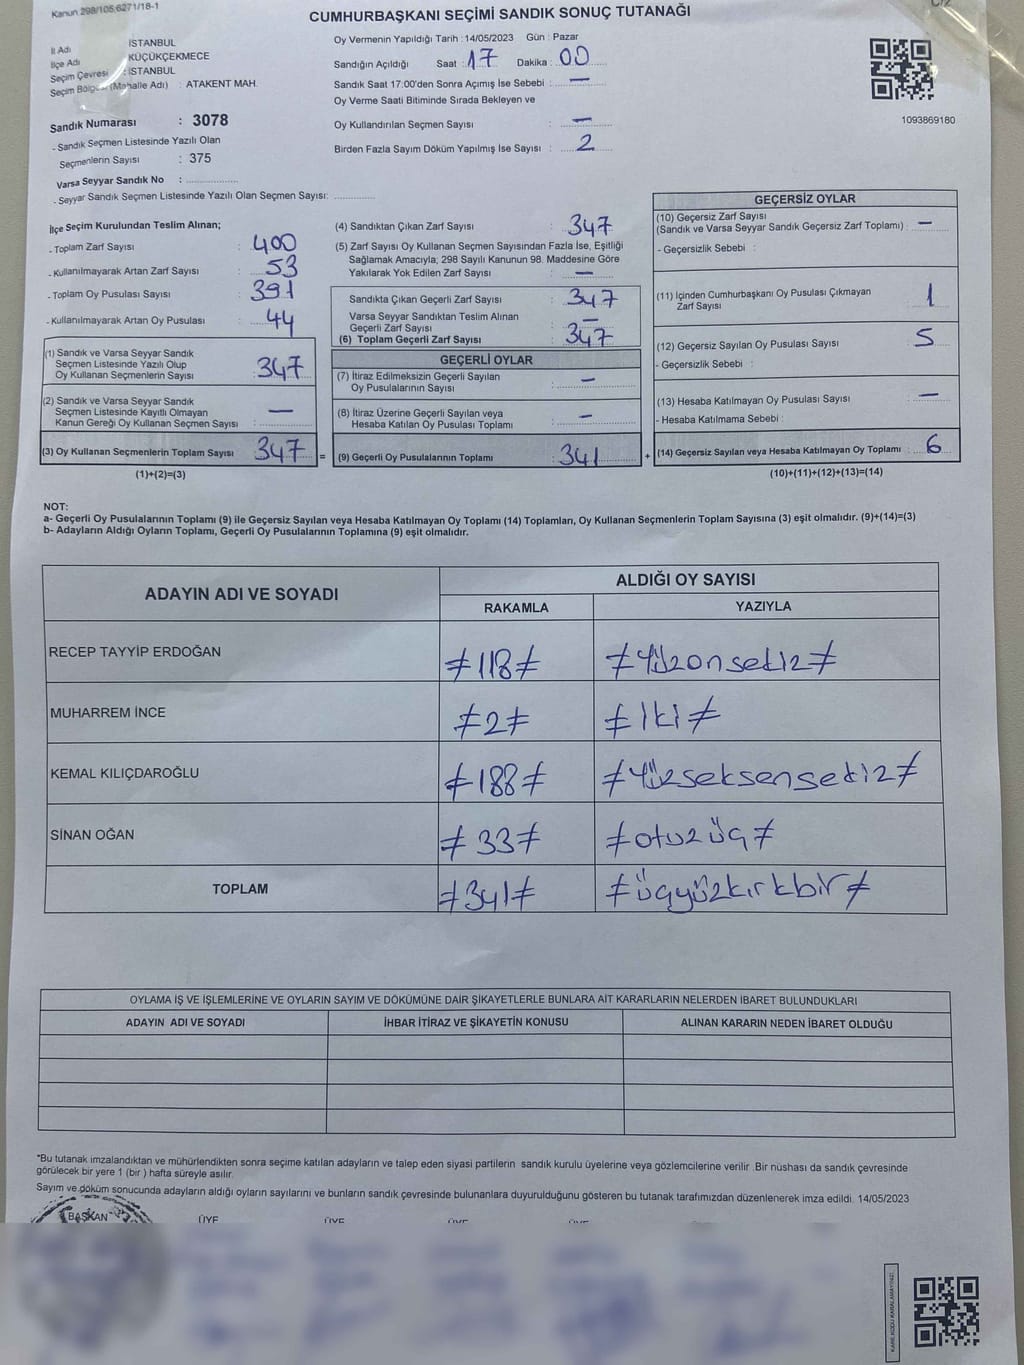 Kanun 298/105;6271/18-1
CUMHURBAŞKANI SEÇİMİ SANDIK SONUÇ TUTANAĞI
C/2
İl Adı : İSTANBUL
İlçe Adı : KÜÇÜKÇEKMECE
Seçim Çevresi : İSTANBUL
Seçim Bölgesi (Mahalle Adı) : ATAKENT MAH.
Sandık Numarası : 3078
- Sandık Seçmen Listesinde Yazılı Olan
Seçmenlerin Sayısı : 375
Varsa Seyyar Sandık No :
- Seyyar Sandık Seçmen Listesinde Yazılı Olan Seçmen Sayısı:
Oy Vermenin Yapıldığı Tarih : 14/05/2023 Gün : Pazar
Sandığın Açıldığı Saat : 17 Dakika : 00
Sandık Saat 17:00'den Sonra Açımış İse Sebebi : —
Oy Verme Saati Bitiminde Sırada Bekleyen ve
Oy Kullandırılan Seçmen Sayısı : —
Birden Fazla Sayım Döküm Yapılmış İse Sayısı : 2
1093869180
İlçe Seçim Kurulundan Teslim Alınan;
- Toplam Zarf Sayısı : 400
- Kullanılmayarak Artan Zarf Sayısı : 53
- Toplam Oy Pusulası Sayısı : 391
- Kullanılmayarak Artan Oy Pusulası : 44
(1) Sandık ve Varsa Seyyar Sandık
Seçmen Listesinde Yazılı Olup
Oy Kullanan Seçmenlerin Sayısı : 347
(2) Sandık ve Varsa Seyyar Sandık
Seçmen Listesinde Kayıtlı Olmayan
Kanun Gereği Oy Kullanan Seçmen Sayısı : —
(3) Oy Kullanan Seçmenlerin Toplam Sayısı 347 =
(1)+(2)=(3)
(4) Sandıktan Çıkan Zarf Sayısı : 347
(5) Zarf Sayısı Oy Kullanan Seçmen Sayısından Fazla İse, Eşitliği
Sağlamak Amacıyla; 298 Sayılı Kanunun 98. Maddesine Göre
Yakılarak Yok Edilen Zarf Sayısı : —
Sandıkta Çıkan Geçerli Zarf Sayısı : 347
Varsa Seyyar Sandıktan Teslim Alınan
Geçerli Zarf Sayısı : —
(6) Toplam Geçerli Zarf Sayısı : 347
GEÇERLİ OYLAR
(7) İtiraz Edilmeksizin Geçerli Sayılan
Oy Pusulalarının Sayısı : —
(8) İtiraz Üzerine Geçerli Sayılan veya
Hesaba Katılan Oy Pusulası Toplamı : —
(9) Geçerli Oy Pusulalarının Toplamı : 341 +
GEÇERSİZ OYLAR
(10) Geçersiz Zarf Sayısı
(Sandık ve Varsa Seyyar Sandık Geçersiz Zarf Toplamı) : —
- Geçersizlik Sebebi :
(11) İçinden Cumhurbaşkanı Oy Pusulası Çıkmayan
Zarf Sayısı : 1
(12) Geçersiz Sayılan Oy Pusulası Sayısı : 5
- Geçersizlik Sebebi :
(13) Hesaba Katılmayan Oy Pusulası Sayısı : —
- Hesaba Katılmama Sebebi :
(14) Geçersiz Sayılan veya Hesaba Katılmayan Oy Toplamı : 6
(10)+(11)+(12)+(13)=(14)
NOT:
a- Geçerli Oy Pusulalarının Toplamı (9) ile Geçersiz Sayılan veya Hesaba Katılmayan Oy Toplamı (14) Toplamları, Oy Kullanan Seçmenlerin Toplam Sayısına (3) eşit olmalıdır. (9)+(14)=(3)
b- Adayların Aldığı Oyların Toplamı, Geçerli Oy Pusulalarının Toplamına (9) eşit olmalıdır.
ADAYIN ADI VE SOYADI ALDIĞI OY SAYISI
RAKAMLA YAZIYLA
RECEP TAYYİP ERDOĞAN ≠118≠ ≠Yüzonsekiz≠
MUHARREM İNCE ≠2≠ ≠İki≠
KEMAL KILIÇDAROĞLU ≠188≠ ≠Yüzseksensekiz≠
SİNAN OĞAN ≠33≠ ≠otuzüç≠
TOPLAM ≠341≠ ≠üçyüzkırkbir≠
OYLAMA İŞ VE İŞLEMLERİNE VE OYLARIN SAYIM VE DÖKÜMÜNE DAİR ŞİKAYETLERLE BUNLARA AİT KARARLARIN NELERDEN İBARET BULUNDUKLARI
ADAYIN ADI VE SOYADI İHBAR İTİRAZ VE ŞİKAYETİN KONUSU ALINAN KARARIN NEDEN İBARET OLDUĞU
*Bu tutanak imzalandıktan ve mühürlendikten sonra seçime katılan adayların ve talep eden siyasi partilerin sandık kurulu üyelerine veya gözlemcilerine verilir .Bir nüshası da sandık çevresinde
görülecek bir yere 1 (bir ) hafta süreyle asılır.
Sayım ve döküm sonucunda adayların aldığı oyların sayılarını ve bunların sandık çevresinde bulunanlara duyurulduğunu gösteren bu tutanak tarafımızdan düzenlenerek imza edildi. 14/05/2023
BAŞKAN ÜYE ÜYE ÜYE ÜYE